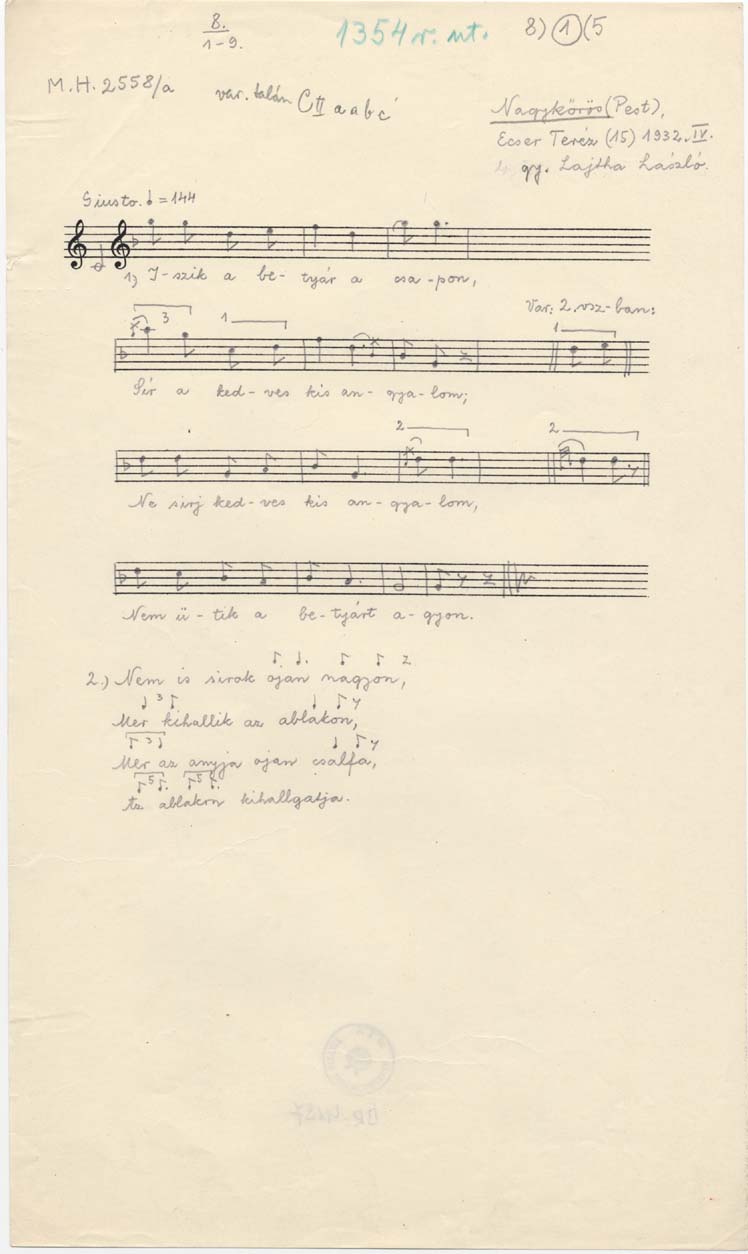 8.
1-9.
1354 r. nt.
8) 1 (5
M.H. 2558/a
var. talán C II a a b c'
Nagykőrös (Pest),
Ecser Teréz (15) 1932. IV.
gy. Lajtha László.
Giusto. = 144
1) I-szik a be-tyár a csa-pon,
Var: 2. vsz-ban:
3 1 1
Sír a ked-ves kis an-gya-lom;
2 2
Ne sirj ked-ves kis an-gya-lom,
Nem ü-tik a be-tyárt a-gyon.
2.) Nem is sirok ojan nagyon,
3
Mer kihallik az ablakon,
3
Mer az anyja ojan csalfa,
5 5
Az ablakon kihallgatja.